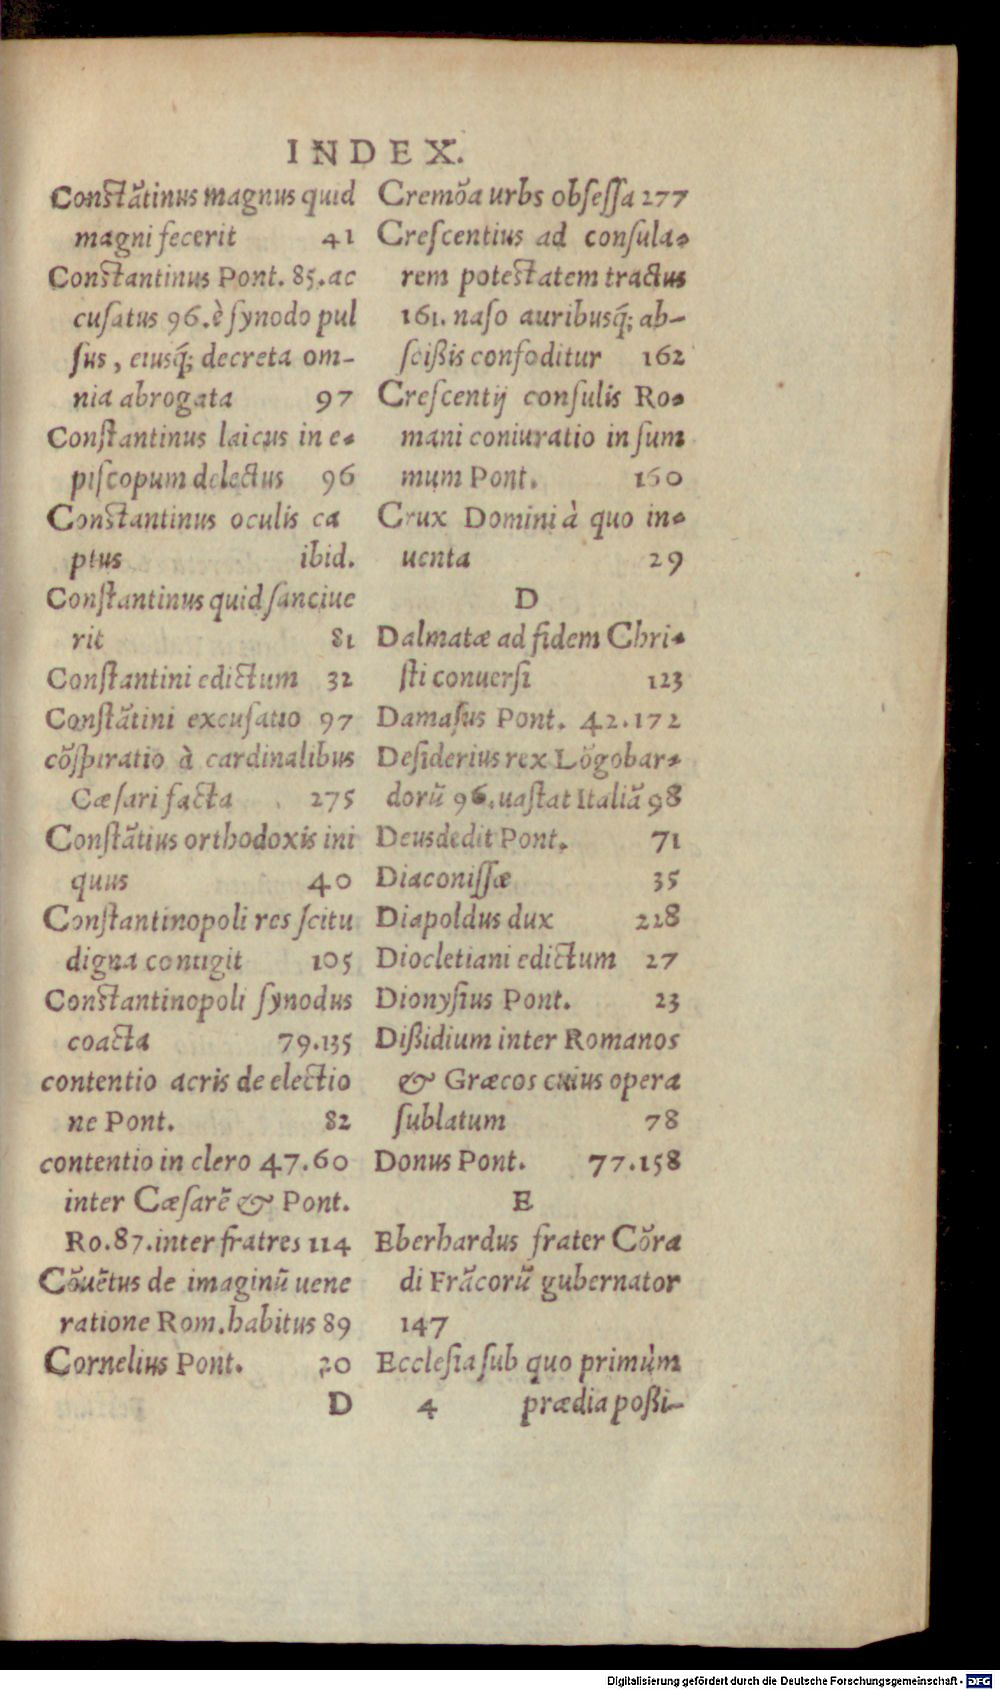 INDEX.
Constãtinus magnus quid
magni fecerit 41
Constantinus Pont. 85. ac
cusatus 96. è synodo pul
sus, eiusq́; decreta om-
nia abrogata 97
Constantinus laicus in e-
piscopum delectus 96
Constantinus oculis ca
ptus ibid.
Constantinus quid sanciue
rit 81
Constantini edictum 32
Constãtini excusatio 97
cõspiratio à cardinalibus
Cæsari facta 275
Constãtius orthodoxis ini
quus 40
Constantinopoli res scitu
digna contigit 105
Constantinopoli synodus
coacta 79.135
contentio acris de electio
ne Pont. 82
contentio in clero 47.60
inter Cæsarẽ & Pont.
Ro. 87. inter fratres 114
Cõuẽtus de imaginũ uene
ratione Rom. habitus 89
Cornelius Pont. 20
Cremõa urbs obsessa 277
Crescentius ad consula-
rem potestatem tractus
161. naso auribusq́; ab-
scißis confoditur 162
Crescentij consulis Ro-
mani coniuratio in sum
mum Pont. 160
Crux Domini à quo in-
uenta 29
D
Dalmatæ ad fidem Chri-
sti conuersi 123
Damasus Pont. 42.172
Desiderius rex Lõgobar-
dorũ 96. uastat Italiã 98
Deusdedit Pont. 71
Diaconissæ 35
Diapoldus dux 228
Diocletiani edictum 27
Dionysius Pont. 23
Dißidium inter Romanos
& Græcos cuius opera
sublatum 78
Donus Pont. 77.158
E
Eberhardus frater Cõra
di Frãcorũ gubernator
147
Ecclesia sub quo primùm
D 4 prædia poßi-
Digitalisierung gefördert durch die Deutsche Forschungsgemeinschaft - DFG